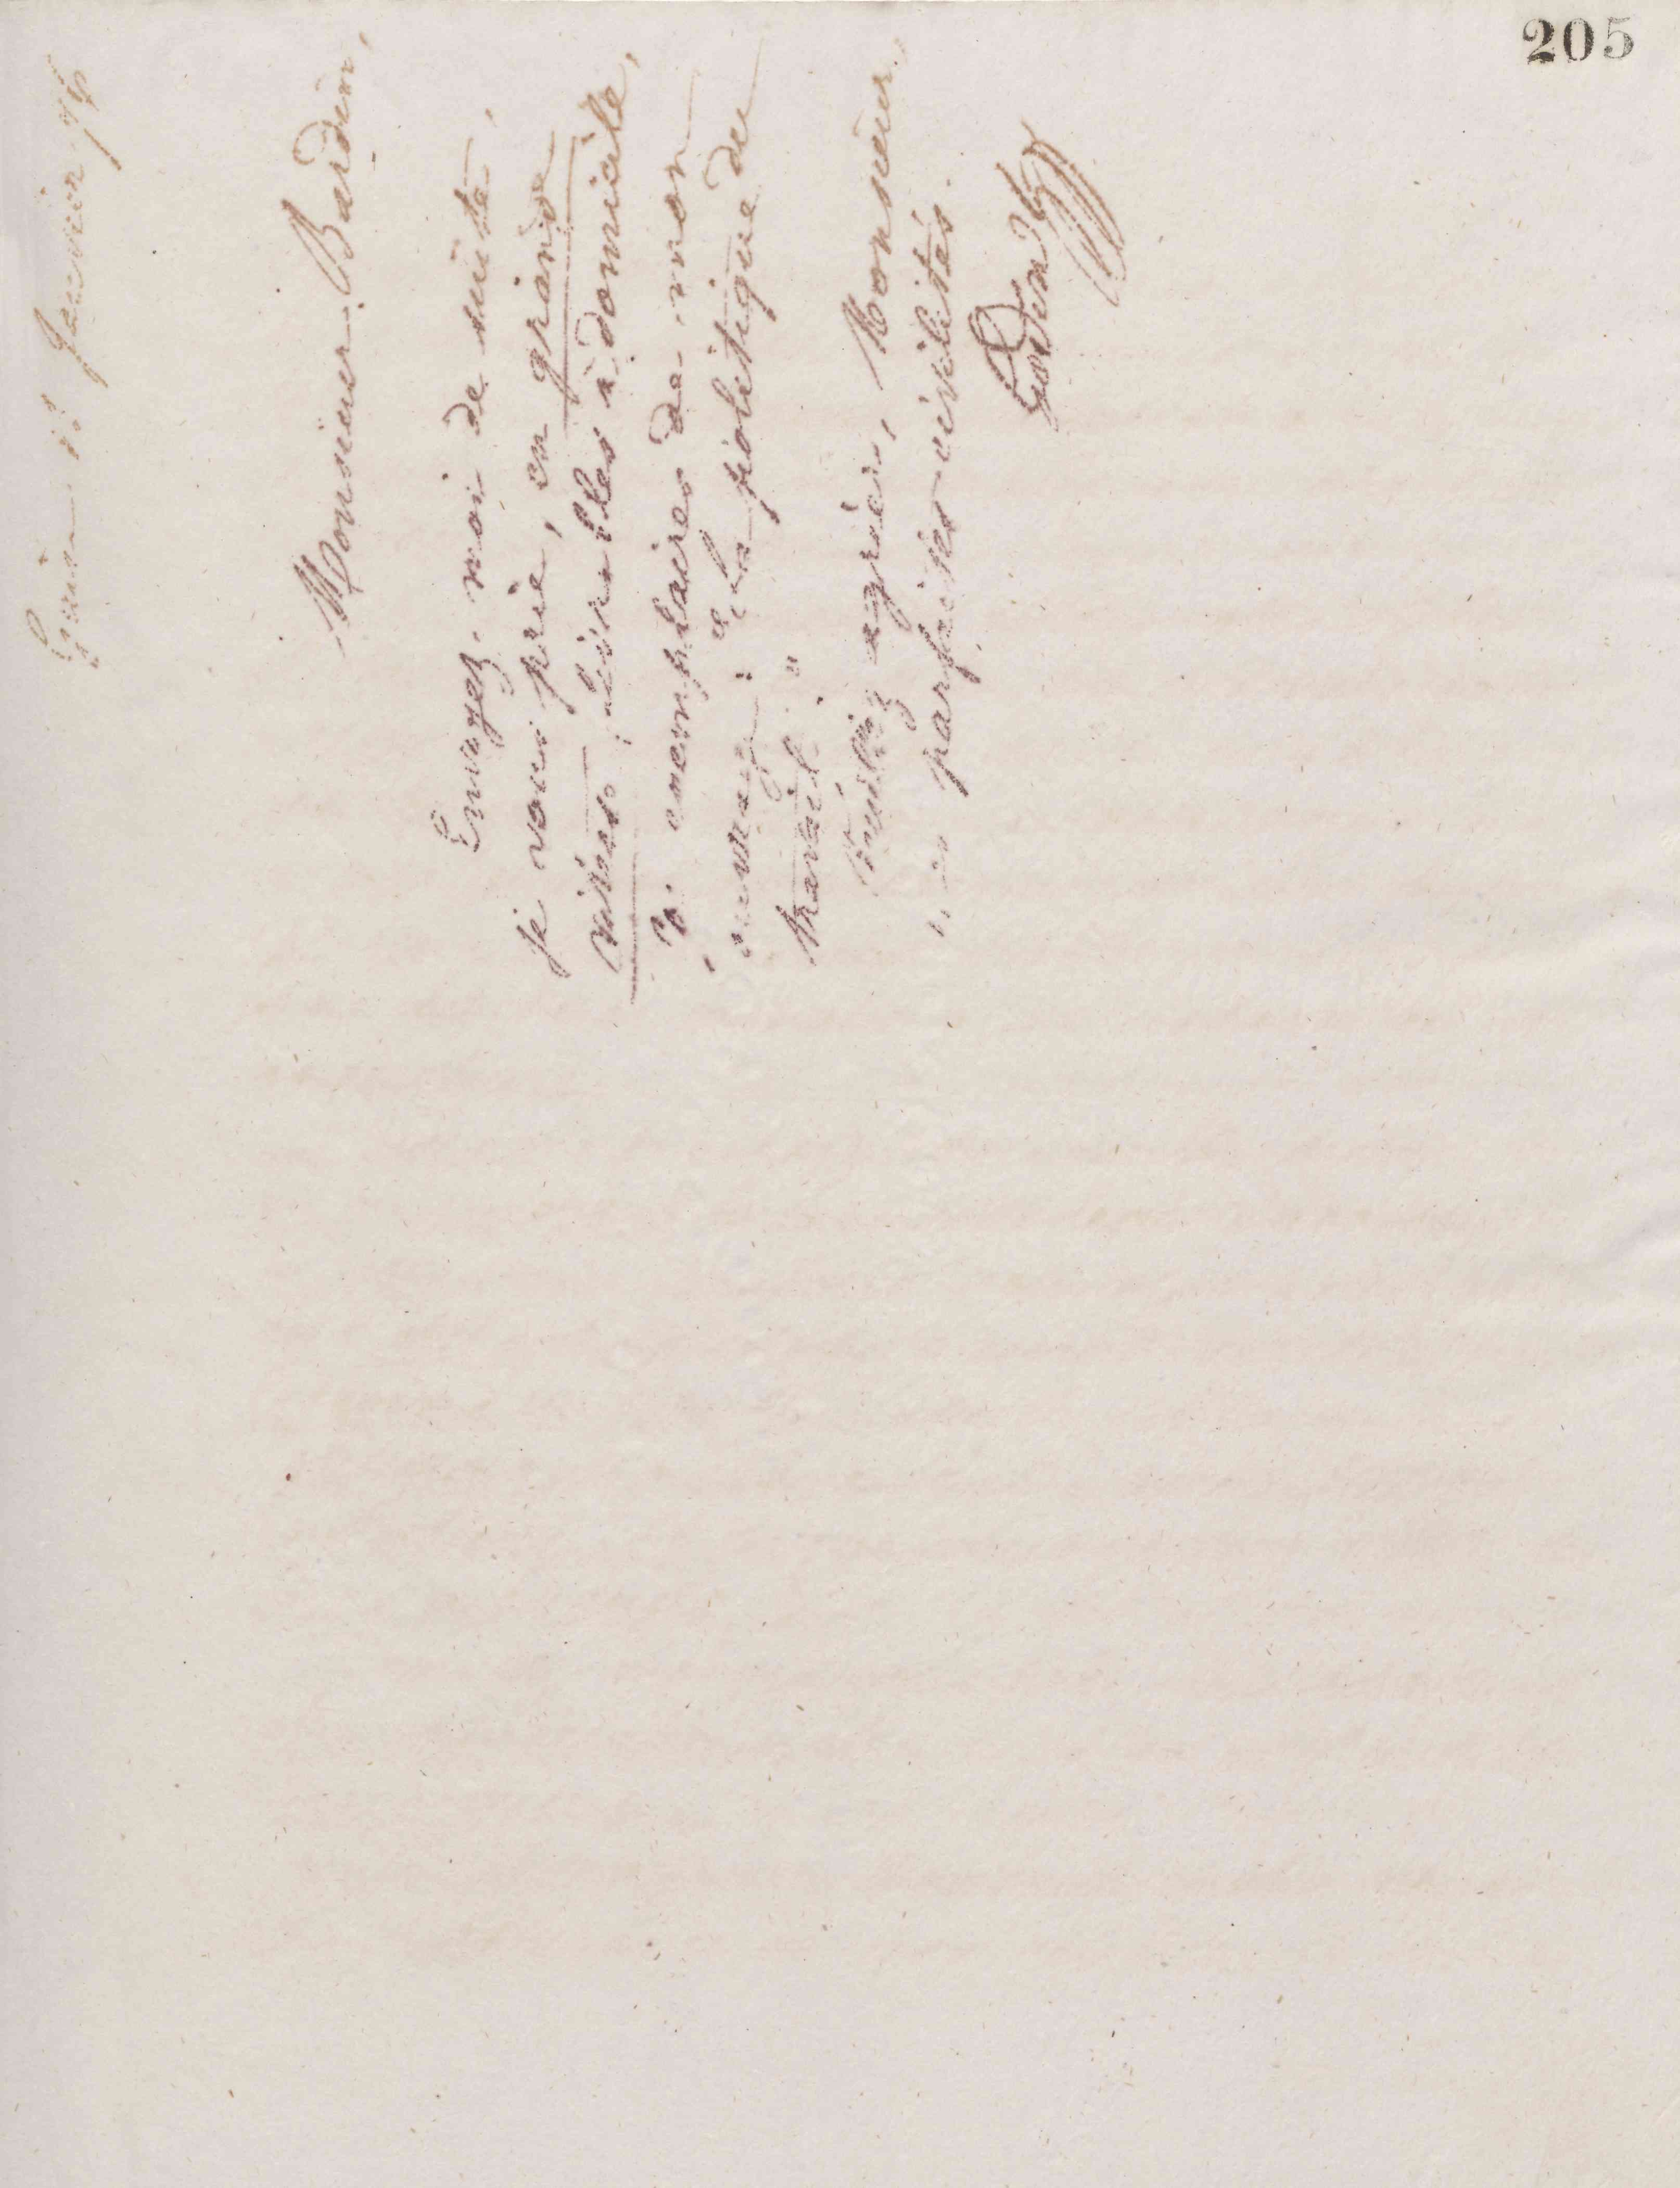 205
Guise Janvier 76
Monsieur Bardin,
Envoyez-moi de suite,
je vous prie, en grande
vitesse, livrables à domicile,
exemplaires de mon
ouvrage: "La politique du
travail."
Veuillez agréer, Monsieur,
mes parfaites civilités.
Godin